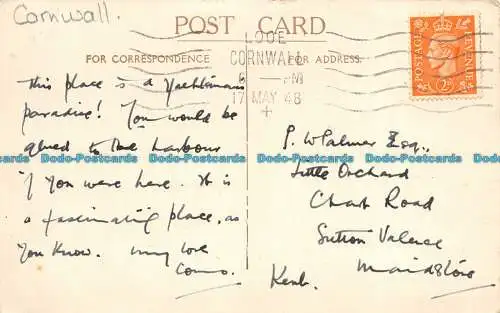 Cornwall.
POST CARD
FOR CORRESPONDENCE
FOR ADDRESS.
LOOE
CORNWALL
PM
17 MAY 48
POSTAGE
REVENUE
This place is a Yachtsman's
paradise! You would be
glued to the harbour
if you were here. It is
a fascinating place, as
you know. My love
P. W Palmer Esq.,
Little Orchard
Chart Road
Sutton Valence
Maidstone
Kent.
Dodo-Postcards Dodo-Postcards Dodo-Postcards